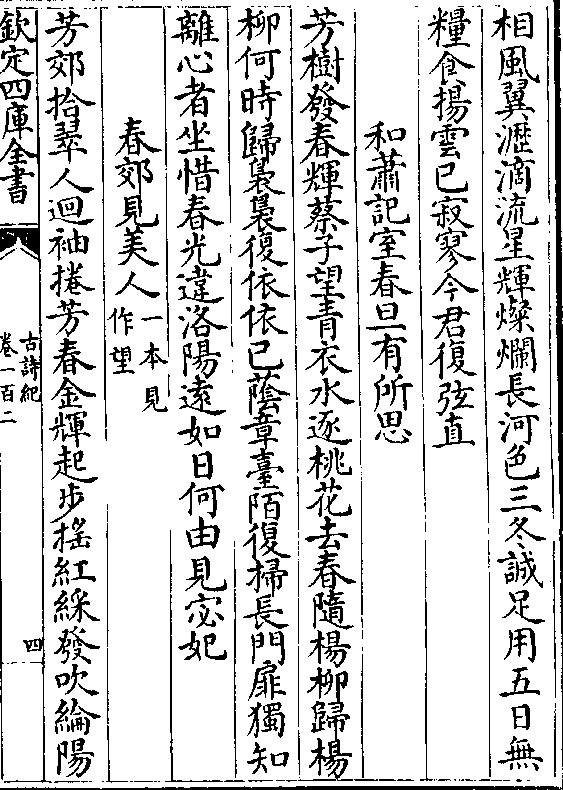 相風翼瀝滴流星輝燦爛長河色三冬誠足用五日無
糧食揚雲已寂寥今君復弦直
和蕭記室春旦有所思
芳樹發春輝蔡子望青衣水逐桃花去春隨楊柳歸楊
柳何時歸裊裊復依依已蔭章臺陌復掃長門扉獨知
離心者坐惜春光違洛陽遠如日何由見宓妃
春郊見美人一本見作望
芳郊拾翠人迴袖捲芳春金輝起步摇紅綵發吹綸陽
欽定四庫全書
古詩紀
卷一百二
四